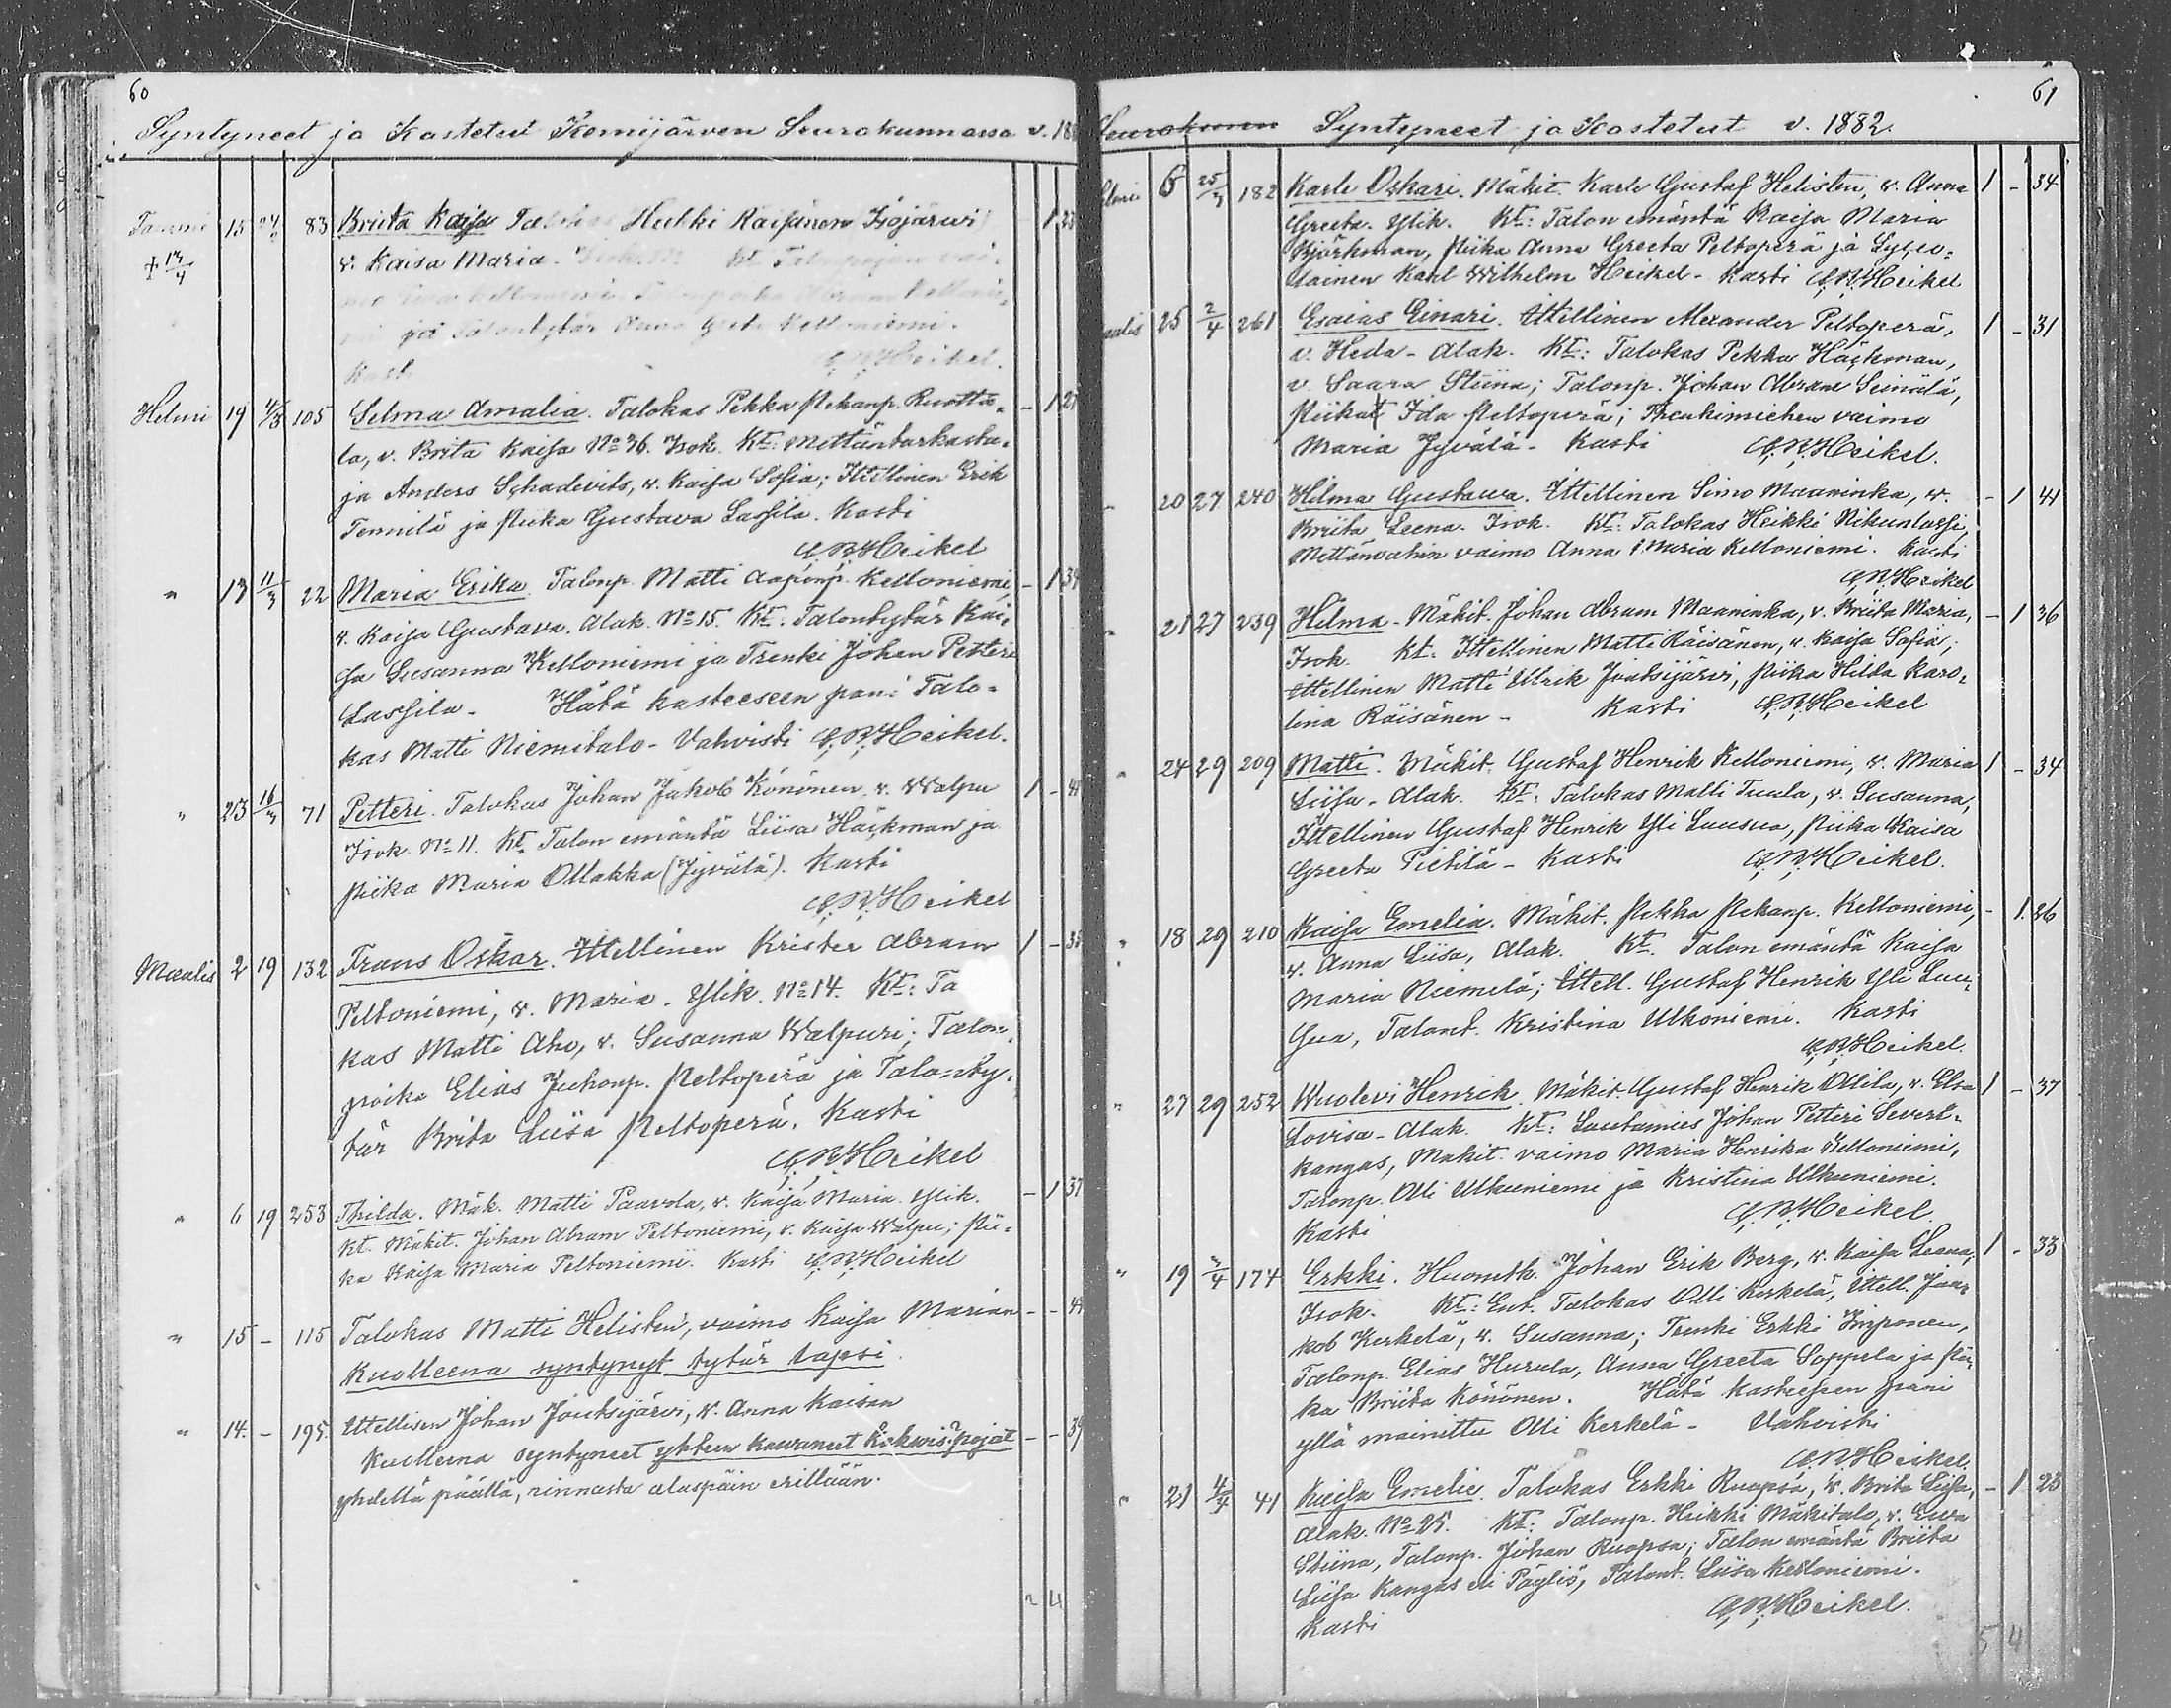 60
Syntyneet ja Kastetut Kemijärven Seurakunnassa v. 18
Tammi 15 83 Briita Kaisa Talokas Heikki Isojärwi 1
+ 14/4 v. Kaisa Maria. Isok. Kt.
ja Talontytär Anna Greta Kelloniemi.
Kasti Heikel.
Helmi 19 4/3 105 Selma Amalia. Talokas Pekka Pekanp. Ruotta- - 1 27
la, v. Brita Kaisa No 36. Isok. Kt: Mettäntarkasta-
ja Anders Schadevits, v. Kaisa Sofia; Ittellinen Erik
Tennilä ja Piika Gustava Lassila. Kasti
Heikel
" 13 11/3 22 Maria Erika. Talonp. Matti Aaponp. Kelloniemi, - 1 39
v. Kaisa Gustava. Alak. No 15. Kt. Talontytär Kai-
sa Susanna Kelloniemi ja Trenki Johan Petteri
Lassila - Hätä kasteeseen pani Talo-
kas Matti Niemitalo - Vahvisti Heikel.
" 23 16/3 71 Petteri. Talokas Johan Jakob Könönen, v. Walpu 1 -
Isok. No 11. Kt. Talon emäntä Liisa Häckman ja
Piika Maria Ollakka (Jyvälä). Kasti
Heikel
Maalis 2 19 132 Frans Oskar. Ittellinen Krister Abram 1 -
Peltoniemi, v. Maria. Ylik. No 14. Kt: Ta
kas Matti Aho, v. Susanna Walpuri; Talon-
poika Elias Juhonp. Peltoperä ja Talonty-
tär Brita Liisa Peltoperä. Kasti
Heikel
" 6 19 253 Thilda. Mäk. Matti Paavola, v. Kaisa Maria. Ylik. - 1 37
Kt. Mäkit. Johan Abram Peltoniemi, v. Kaisa Walpu; Pii-
ka Kaisa Maria Peltoniemi. Kasti Heikel
" 15 - 115 Talokas Matti Helisten, vaimo Kaisa Marian - -
Kuolleena syntynyt tytär lapsi.
" 14. - 195. Ittellisen Johan Joutsijärvi, v. Anna Kaisan
Kuolleena syntyneet yhteen kasvaneet poijat - - 39
yhdellä päällä, rinnasta alaspäin erillään.
2 4
61
Seurakunn Syntyneet ja Kastetut v. 1882.
Helmi 6 25/3 182 Karle Oskari. Mäkit. Karle Gustaf Helisten, v. Anna 1 - 34
Greeta. Ylik. Kt: Talon emäntä Kaisa Maria
Björkman, Piika Anna Greeta Peltoperä ja Lyseo-
lainen Karl Wilhelm Heikel - Kasti Heikel
aalis 25 2/4 261 Esaias Einari. Ittellinen Alexander Peltoperä, 1 - 31
v. Heda - Alak. Kt: Talokas Pekka Häckman,
v. Saara Stiina; Talonp. Johan Abram Seinälä,
Piikat Ida Peltoperä; Trenkimiehen vaimo
Maria Jyvälä - Kasti Heikel.
" 20 27 240 Hilma Gustawa. Ittellinen Simo Maaninka, v. - 1 41
Briita Leena. Isok. Kt: Talokas Heikki Nikunlassi,
Mettänvahin vaimo Anna Maria Kelloniemi. Kasti
Heikel
" 21 27 239 Hilma - Mäkit. Johan Abram Maaninka, v. Briita Maria, - 1 36
Isok. Kt. Ittellinen Matti Räisänen, v. Kaisa Sofia;
Ittellinen Matti Ulrik Joutsijärvi, Piika Hilda Karo-
lina Räisänen - Kasti Heikel
" 24 29 209 Matti. Mäkit. Gustaf Henrik Kelloniemi, v. Maria 1 - 34
Liisa - Alak. Kt: Talokas Matti Tuula, v. Susanna,
Ittellinen Gustaf Henrik Yli Luusua, Piika Kaisa
Greeta Pietilä - Kasti Heikel.
" 18 29 210 Kaisa Emelia. Mäkit. Pekka Pekanp. Kelloniemi, - 1. 26
v. Anna Liisa, Alak. Kt. Talon emäntä Kaisa
Maria Niemelä; Ittell. Gustaf Henrik Yli Luu-
sua, Talont. Kristina Ulkoniemi. Kasti
Heikel.
" 27 29 252 Wuolevi Henrik. Mäkit. Gustaf Henrik Ollila, v. Elsa 1 - 37
Lovisa - Alak. Kt: Lautamies Johan Petteri Severi-
kangas, Mäkit. vaimo Maria Henrika Kelloniemi,
Talonp. Olli Ulkuniemi ja Kristina Ulkuniemi.
Kasti Heikel.
" 19 174 Erkki. Huonetk. Johan Erik Berg, v. Kaisa Leena, 1 - 33
Isok. Kt: Ent. Talokas Olli Kerkelä, Ittell. Jaa-
kob Kerkelä, v. Susanna; Trenki Erkki Imponen,
Talonp. Elias Hurula, Anna Greeta Soppela ja Pii-
ka Briita Könönen. Hätä kasteeseen pani
yllä mainittu Olli Kerkelä - Vahvisti
Heikel.
" 21 4/4 41 Kaisa Emelie. Talokas Erkki Ruopsa, v. Brita Liisa, - 1 23
Alak. No 25. Kt: Talonp. Heikki Mäkitalo, v. Ewa
Stiina, Talonp. Johan Ruopsa; Talon emäntä Briita
Liisa Kangas eli Pöyliö, Talont. Liisa Kelloniemi.
Kasti Heikel.
5 4